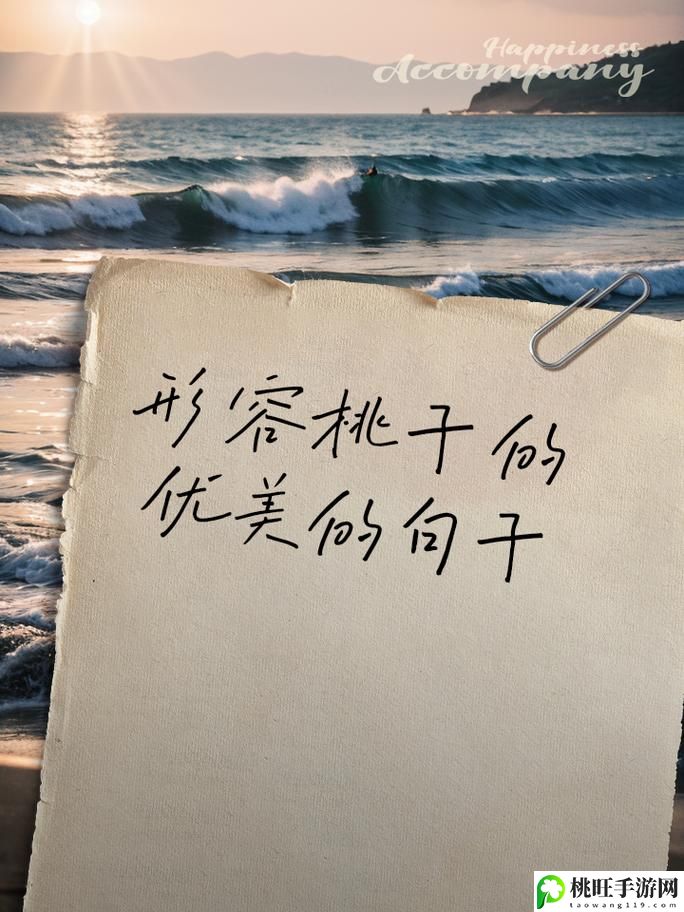 Happiness
Accompany
形容桃子的
优美的句子
桃旺手游网
taowang119.com